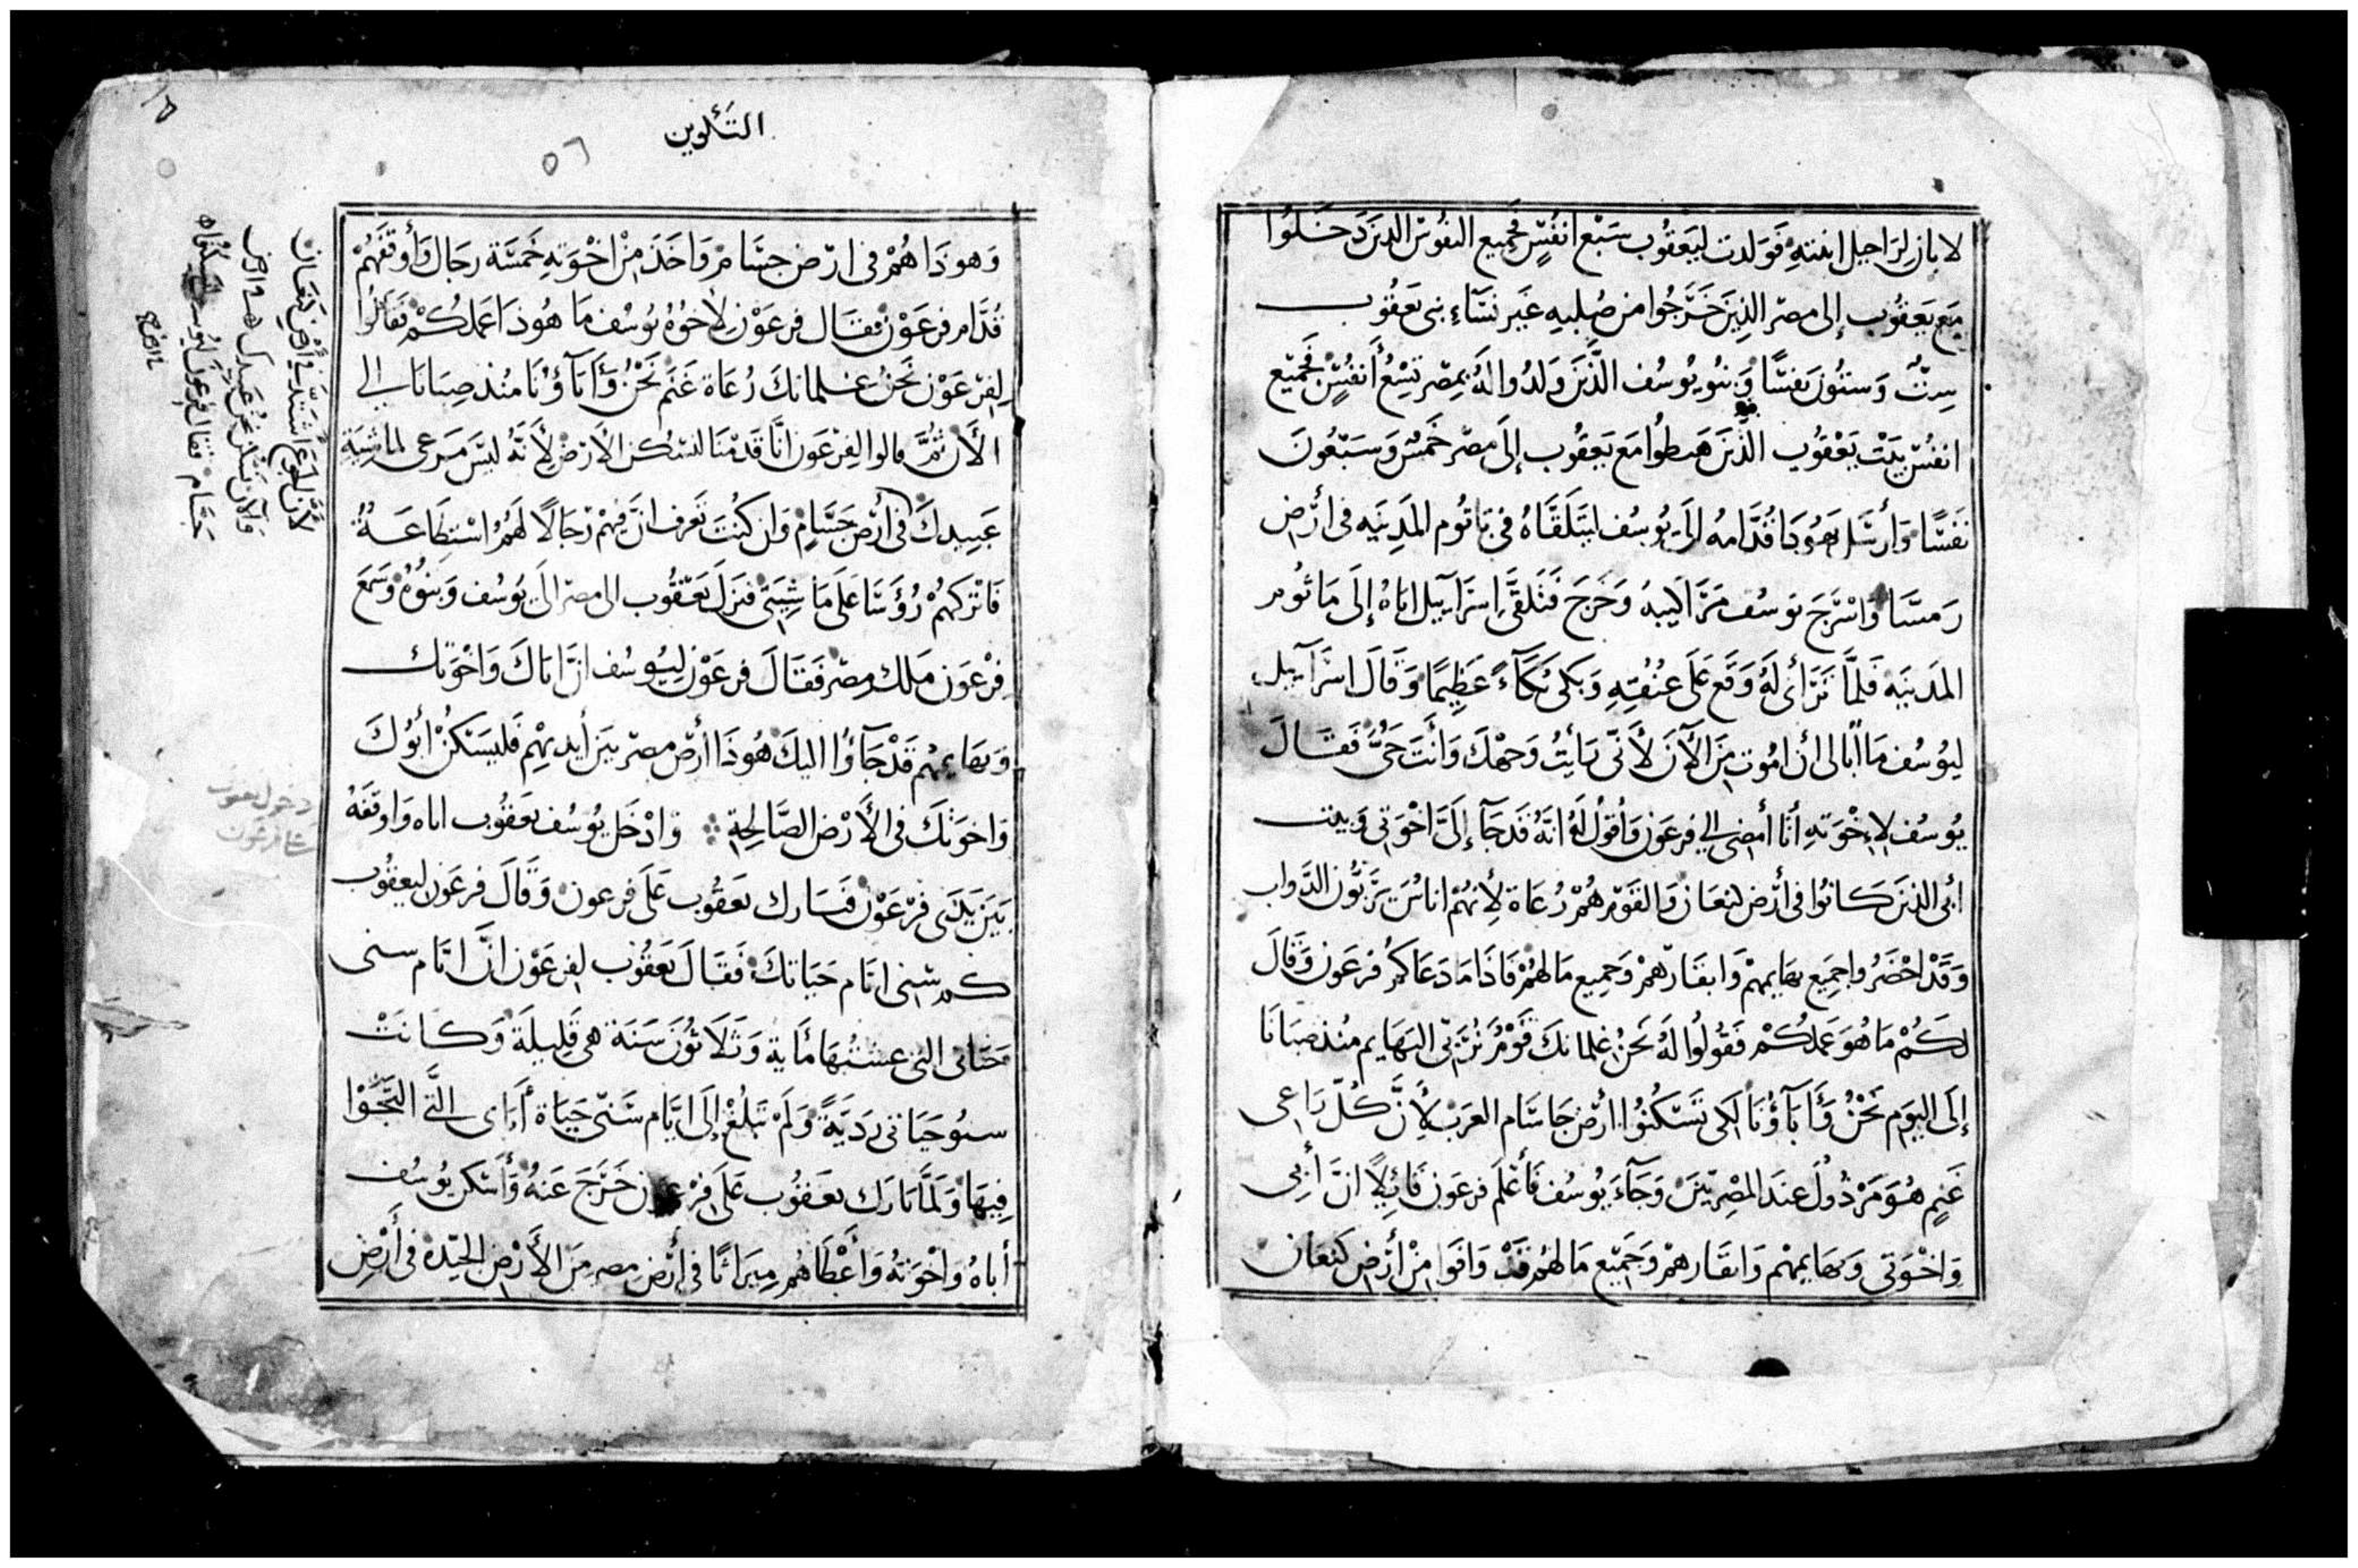 لابان لراحيل ابنته فولدت ليعقوب سبع انفس فجميع النفوس الدين دخلوا
مع يعقوب إلى مصر الذين خرجوا من صلبه غير نساء بنى يعقوب
ستٌ وستون نفسًا وبنو يوسف الذين ولدوا له بمصر تسع أنفس فجميع
انفس بيت يعقوب الذين هبطوا مع يعقوب إلى مصر خمس وسبعون
نفسًا وأرسل يهودا قدامه الى يوسف ليتلقاه في ياثوم المدينه في أرض
رمسا واسرج يوسف مراكبه وخرج فتلقى إسرآييل اباه إلى ياثوم
المدينه فلما ترأى له وقع على عنقه وبكى بكآءً عظيمًا وقال اسرآييل
ليوسف ما أبالى أن اموت من الآن لأنى رأيت وجهك وأنت حىٌ فقال
يوسف لإخوته أنا أمضى إلي فرعون وأقول له انه قد جآ إلى اخوتى وبيت
أبى الذين كانوا في أرض كنعان والقوم هم رعاة لأنهم اناس يربون الدواب
وقد احضروا جميع بهايمهم وابقارهم وجميع مالهم فاذا ما دعاكم فرعون وقال
لكم ما هو عملكم فقولوا له نحن غلمانك قوم نربى البهايم منذ صبانا
إلى اليوم نحن وأبآؤنا لكى تسكنوا أرض جاسام العرب لأن كل راعى
غنم هو مرذول عند المصريين وجآء يوسف فأعلم فرعون قائلاً ان أبى
واخوتى وبهايمهم وابقارهم وجميع مالهم قد وافوا من أرض كنعان
التكوين
٥٦
وهو ذا هم في ارض جسام واخذ من اخوته خمسة رجال وأوقفهم
قدام فرعون فقال فرعون لاخوة يوسف ما هوذا عملكم فقالوا
لفرعون نحن غلمانك رعاة غنم نحن وأبآؤنا منذ صبانا إلي
الأن ثم قالوا لفرعون انا قدمنا لنسكن الأرض لأنه ليس مرعى لماشية
عبيدك في أرض جسام وان كنت تعرف ان فيهم رجالاً لهم استطاعة
فاتركهم رؤسا على ماشيتى فنزل يعقوب الى مصر الى يوسف وبنوه وسمع
فرعون ملك مصر فقال فرعون ليوسف انّ اباك واخوتك
وبهايمهم قد جآوا اليك هوذا أرض مصر بين أيديهم فليسكن أبوك
واخوتك في الأرض الصالحة وادخل يوسف يعقوب اباه واوقفه
بين يدى فرعون فبارك يعقوب على فرعون وقال فرعون ليعقوب
كم سنى ايام حياتك فقال يعقوب لفرعون انّ ايام سنى
حياتى التى عشتها مأية وثلاثون سنة هى قليلة وكانت
سنو حياتى رديةً ولم تبلغ إلى ايام سنى حياة أباى التى التجوا
فيها ولما بارك يعقوب على فرعون خرج عنه وأسكن يوسف
أباه واخوته وأعطاهم ميراثا في أرض مصر من الأرض الجيدة في أرض
لأن الجوع اشتد في أرض كنعان
والآن نسكن نحن عبيدك في ارض
جسام فقال فرعون ليوسف
دخول يعقوب
على فرعون